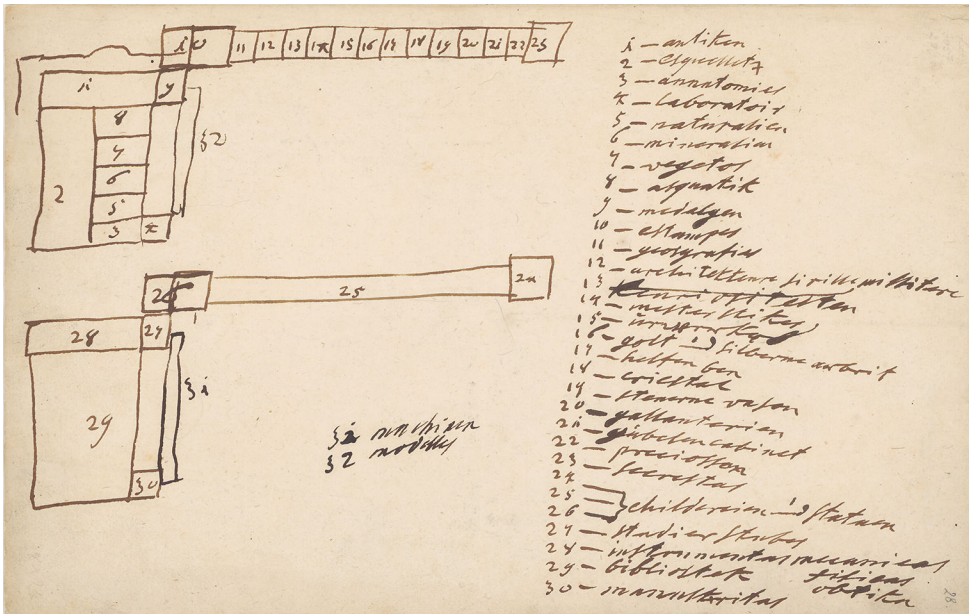 i 0 11 12 13 14 15 16 17 18 19 20 21 22 23
ii 9
8
7
6
5
3 4
2
32
26 25 24
28 27
29
30
3i
3i machinen
32 modelles
1 — antiken
2 — esquelletz
3 — annatomies
4 — laboratoir
5 — naturalien
6 — mineralien
7 — vegetos
8 — alquatik
9 — medalgen
10 — estampes
11 — geografies
12 — architekture millitere
13
14 — mester stikes
15 —
16 — golt silberne arbeit
17 — helfen ben
18 — cristal
19 — stenerne vasen
20 — gallanterien
21 — cabinet
22 — preciossen
23 — secrettas
24
25 —
26 — childereien statuen
27 — studier stube
28 — instrumentas mecanicas
fisicas
29 — bibliotek obtika
30 — manuskritas
28